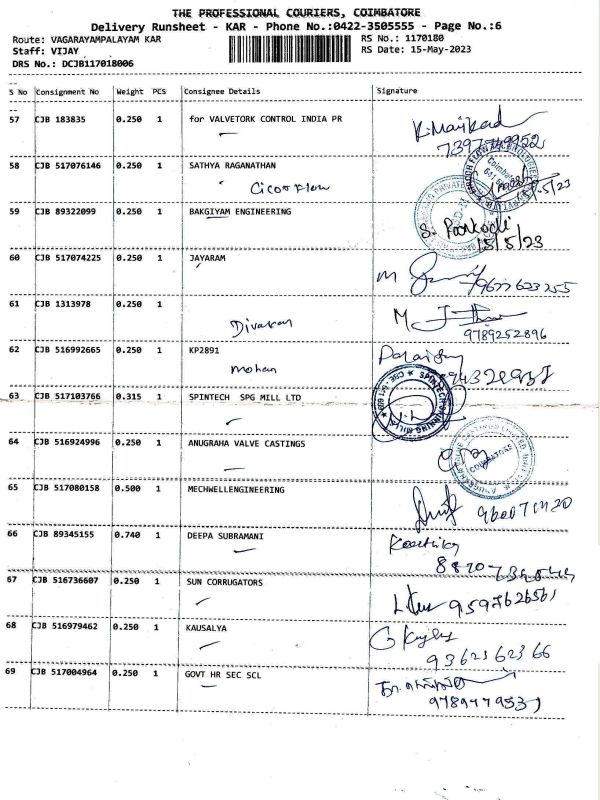 THE PROFESSIONAL COURIERS, COIMBATORE
Delivery Runsheet - KAR - Phone No.:0422-3505555 - Page No.:6
Route: VAGARAYAMPALAYAM KAR RS No.: 1170180
Staff: VIJAY RS Date: 15-May-2023
DRS No.: DCJB117018006
S No Consignment No Weight PCS Consignee Details Signature
57 CJB 183835 0.250 1 for VALVETORK CONTROL INDIA PR
7397749952
58 CJB 517076146 0.250 1 SATHYA RAGANATHAN
59 CJB 89322099 0.250 1 BAKGIYAM ENGINEERING
15/5/23
60 CJB 517074225 0.250 1 JAYARAM
M 9677623255
61 CJB 1313978 0.250 1
Divakar M
9789252896
62 CJB 516992665 0.250 1 KP2891
mohan
63 CJB 517103766 0.315 1 SPINTECH SPG MILL LTD
64 CJB 516924996 0.250 1 ANUGRAHA VALVE CASTINGS
COIMBATORE
65 CJB 517080158 0.500 1 MECHWELLENGINEERING
66 CJB 89345155 0.740 1 DEEPA SUBRAMANI
67 CJB 516736607 0.250 1 SUN CORRUGATORS
68 CJB 516979462 0.250 1 KAUSALYA
9362362366
69 CJB 517004964 0.250 1 GOVT HR SEC SCL